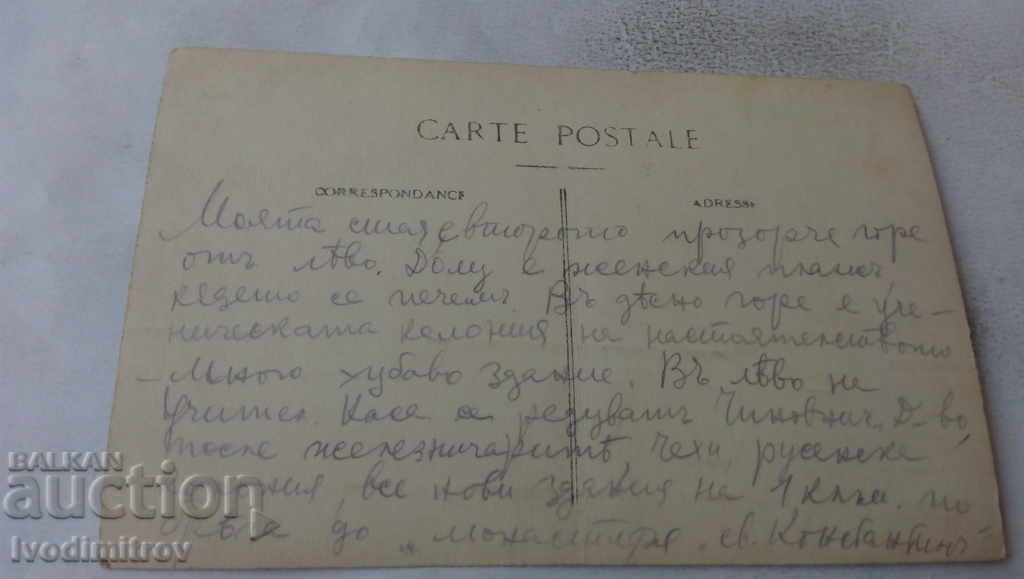 CARTE POSTALE
CORRESPONDANCE
ADRESSE
Моята стая е второто прозорче горе
отъ лѣво. Долу е женския плажъ
кѫдето се печемъ. Въ дѣсно горе е уче-
ническата колония на настоятелството
— Много хубаво здание. Въ лѣво на
Учител. Каса се редуватъ Чиновнич. Д-во,
после железничаритѣ, Чехи, русенска
все нови здания на 1 клм. по
до „монастиря св. Константинъ
BALKAN
auction
Ivodimitrov